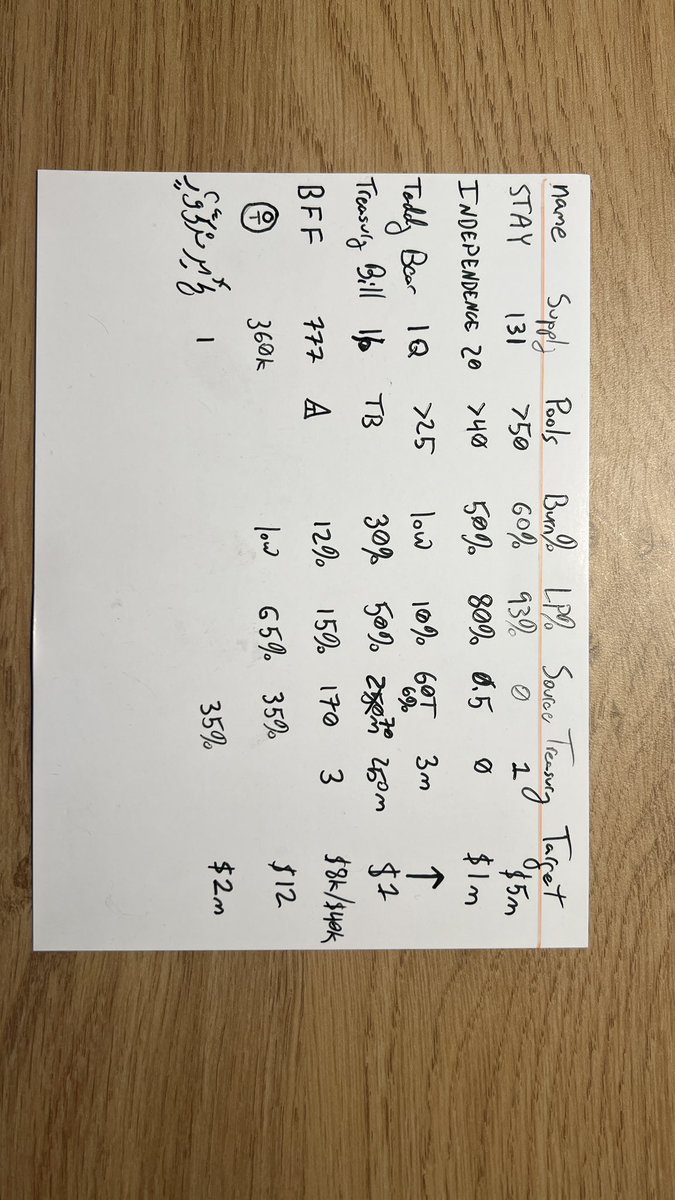 name Supply Pools Burn% LP% Source Treasury Target
STAY 131 >50 60% 93% 0 1 $5m
INDEPENDENCE 20 >40 50% 80% 0.5 0 $1m
Teddy Bear 1Q >25 low 10% 60T 6% 3m ↑
Treasury Bill TB 30% 50% 70m 250m $1
BFF 777 12% 15% 170 3 $8k/$40k
360k low 65% 35% $12
1 35% $2m